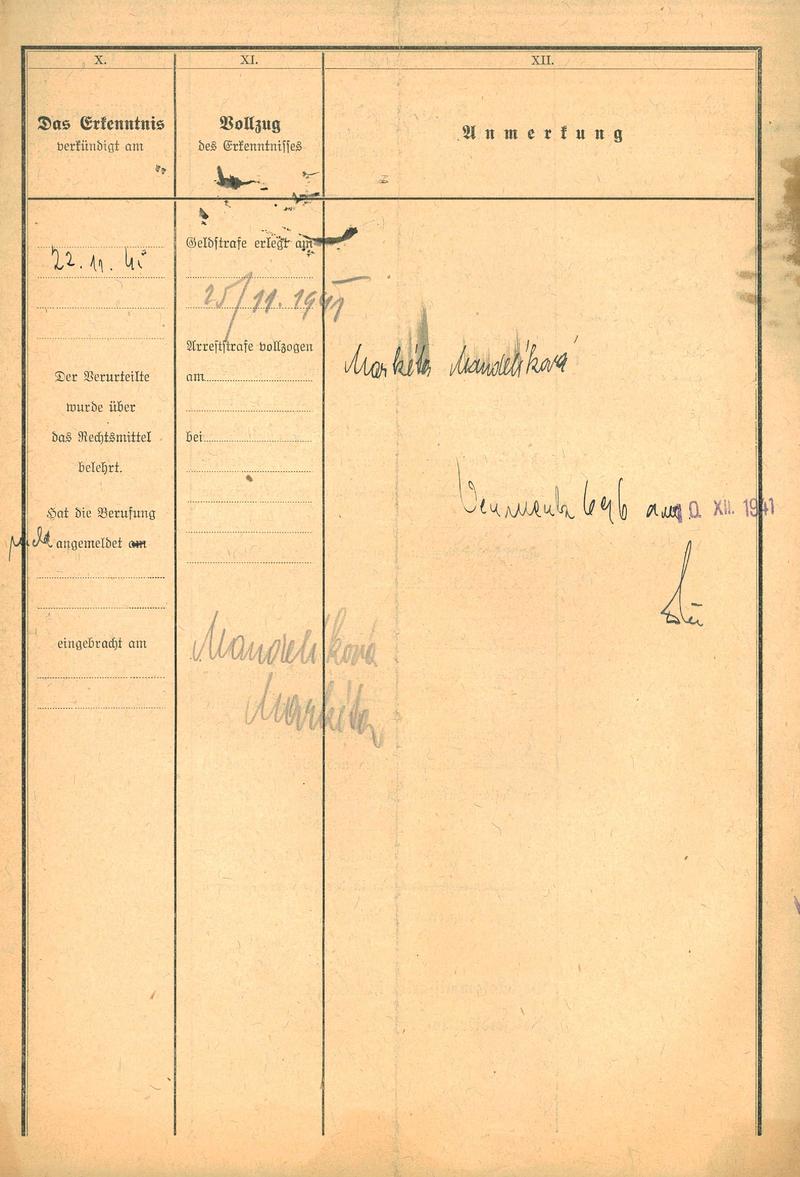 X.
Das Erkenntnis
verkündigt am
22. 11. 41
Der Verurteilte
wurde über
das Rechtsmittel
belehrt.
Hat die Berufung
nicht angemeldet am
eingebracht am
XI.
Vollzug
des Erkenntnisses
Geldstrafe erlegt am
25/11. 1941
Arreststrafe vollzogen
am
bei
Mandelíková
Markéta
XII.
Anmerkung
Markéta Mandelíková
am 0. XII. 1941